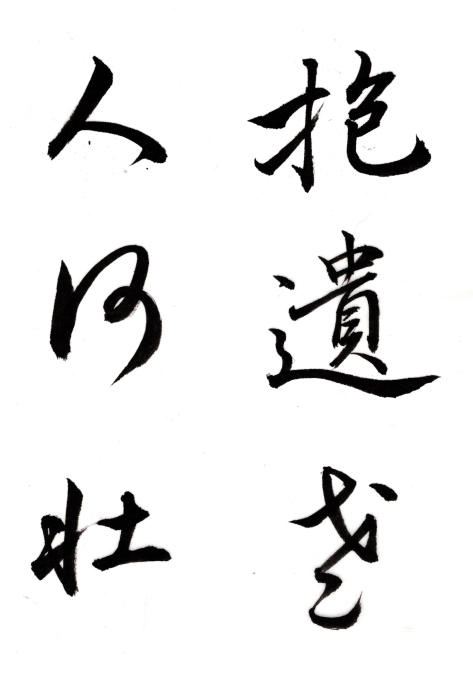 抱遺老
人何壯